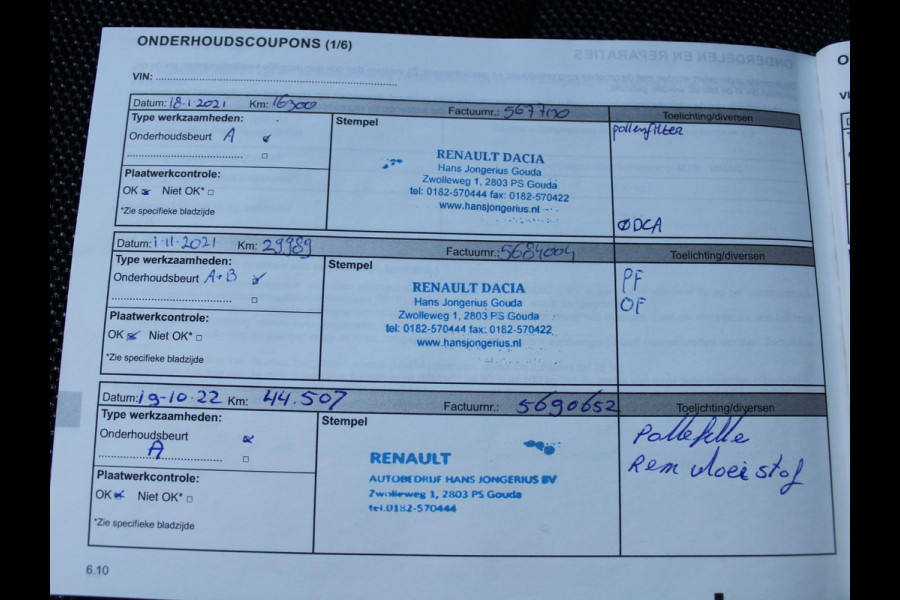 ONDERHOUDSCOUPONS (1/6)
VIN:
Datum: 18-1-2021 Km: 16300 Factuurnr.: 5677130 Toelichting/diversen
Type werkzaamheden: Stempel pollenfilter
Onderhoudsbeurt A
RENAULT DACIA
Hans Jongerius Gouda
Plaatwerkcontrole: Zwolleweg 1, 2803 PS Gouda
OK Niet OK* tel: 0182-570444 fax: 0182-570422
www.hansjongerius.nl
*Zie specifieke bladzijde
ØDCA
Datum: 1-11-2021 Km: 29989 Factuurnr.: 5684004 Toelichting/diversen
Type werkzaamheden: Stempel PF
Onderhoudsbeurt A+B OF
RENAULT DACIA
Hans Jongerius Gouda
Plaatwerkcontrole: Zwolleweg 1, 2803 PS Gouda
OK Niet OK* tel: 0182-570444 fax: 0182-570422
www.hansjongerius.nl
*Zie specifieke bladzijde
Datum: 19-10-22 Km: 44.507 Factuurnr.: 5690652 Toelichting/diversen
Type werkzaamheden: Stempel
Onderhoudsbeurt Pollefille
A Rem vloeistof
RENAULT
Plaatwerkcontrole: AUTOBEDRIJF HANS JONGERIUS BV
OK Niet OK* Zwolleweg 1, 2803 PS Gouda
tel.0182-570444
*Zie specifieke bladzijde
6.10